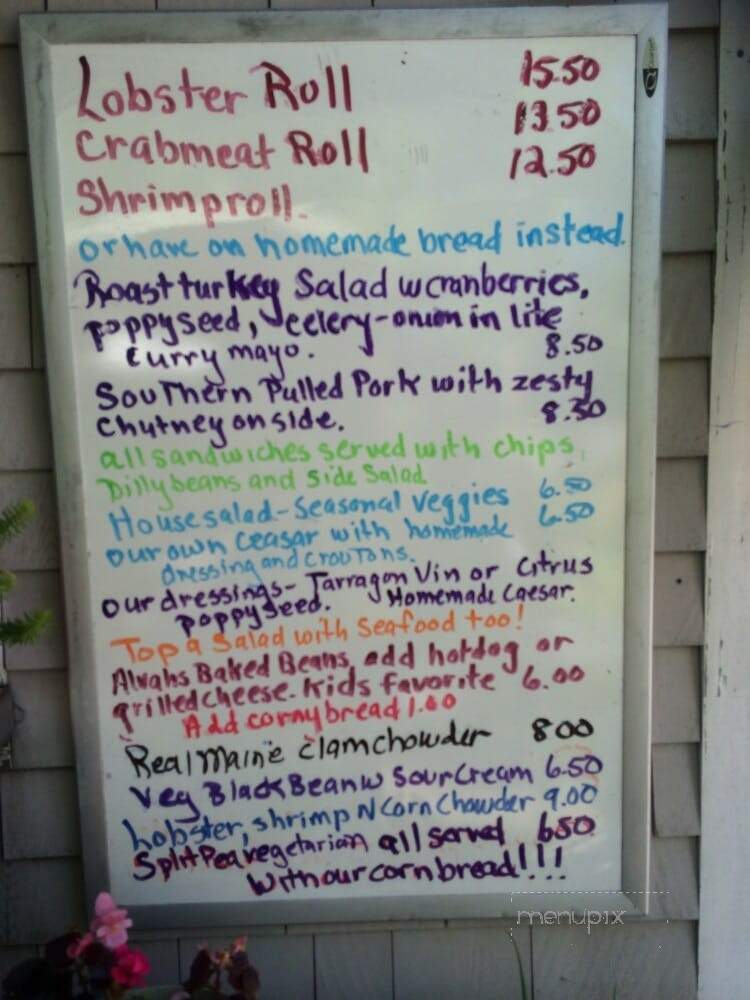 Lobster Roll 15.50
Crabmeat Roll 13.50
Shrimproll. 12.50
or have on homemade bread instead.
Roast turkey Salad w cranberries,
poppyseed, celery-onion in lite
curry mayo. 8.50
Southern Pulled Pork with zesty
Chutney on side. 8.50
all sandwiches served with chips,
Dillybeans and Side Salad
House salad-Seasonal Veggies 6.50
our own Ceasar with homemade 6.50
dressing and croutons.
our dressings- Tarragon Vin or Citrus
poppyseed. Homemade Caesar.
Top a Salad with Seafood too!
Alwahs Baked Beans, add hotdog or
grilled cheese. Kids favorite 6.00
Add corny bread 1.00
Real Maine Clam chowder 800
Veg Black Bean w Sour Cream 6.50
Lobster, shrimp N Corn Chowder 9.00
Split Pea vegetarian all served 650
with our corn bread!!!
menupix